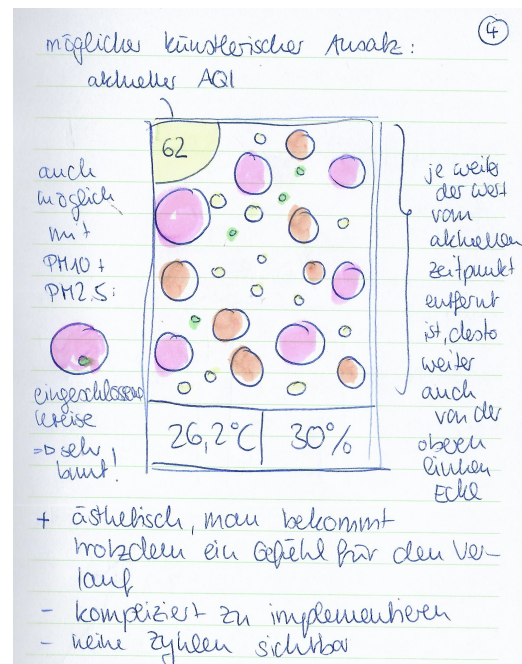 4
möglicher künstlerischer Ansatz:
aktueller AQI
62
auch
möglich
mit
PM10 +
PM2.5:
eingeschlossene
Kreise
=> sehr
bunt!
je weiter
der Wert
vom
aktuellen
Zeitpunkt
entfernt
ist, desto
weiter
auch
von der
oberen
linken
Ecke
26,2°C
30%
+ ästhetisch, man bekommt
trotzdem ein Gefühl für den Ver-
lauf
- kompliziert zu implementieren
- keine Zyklen sichtbar